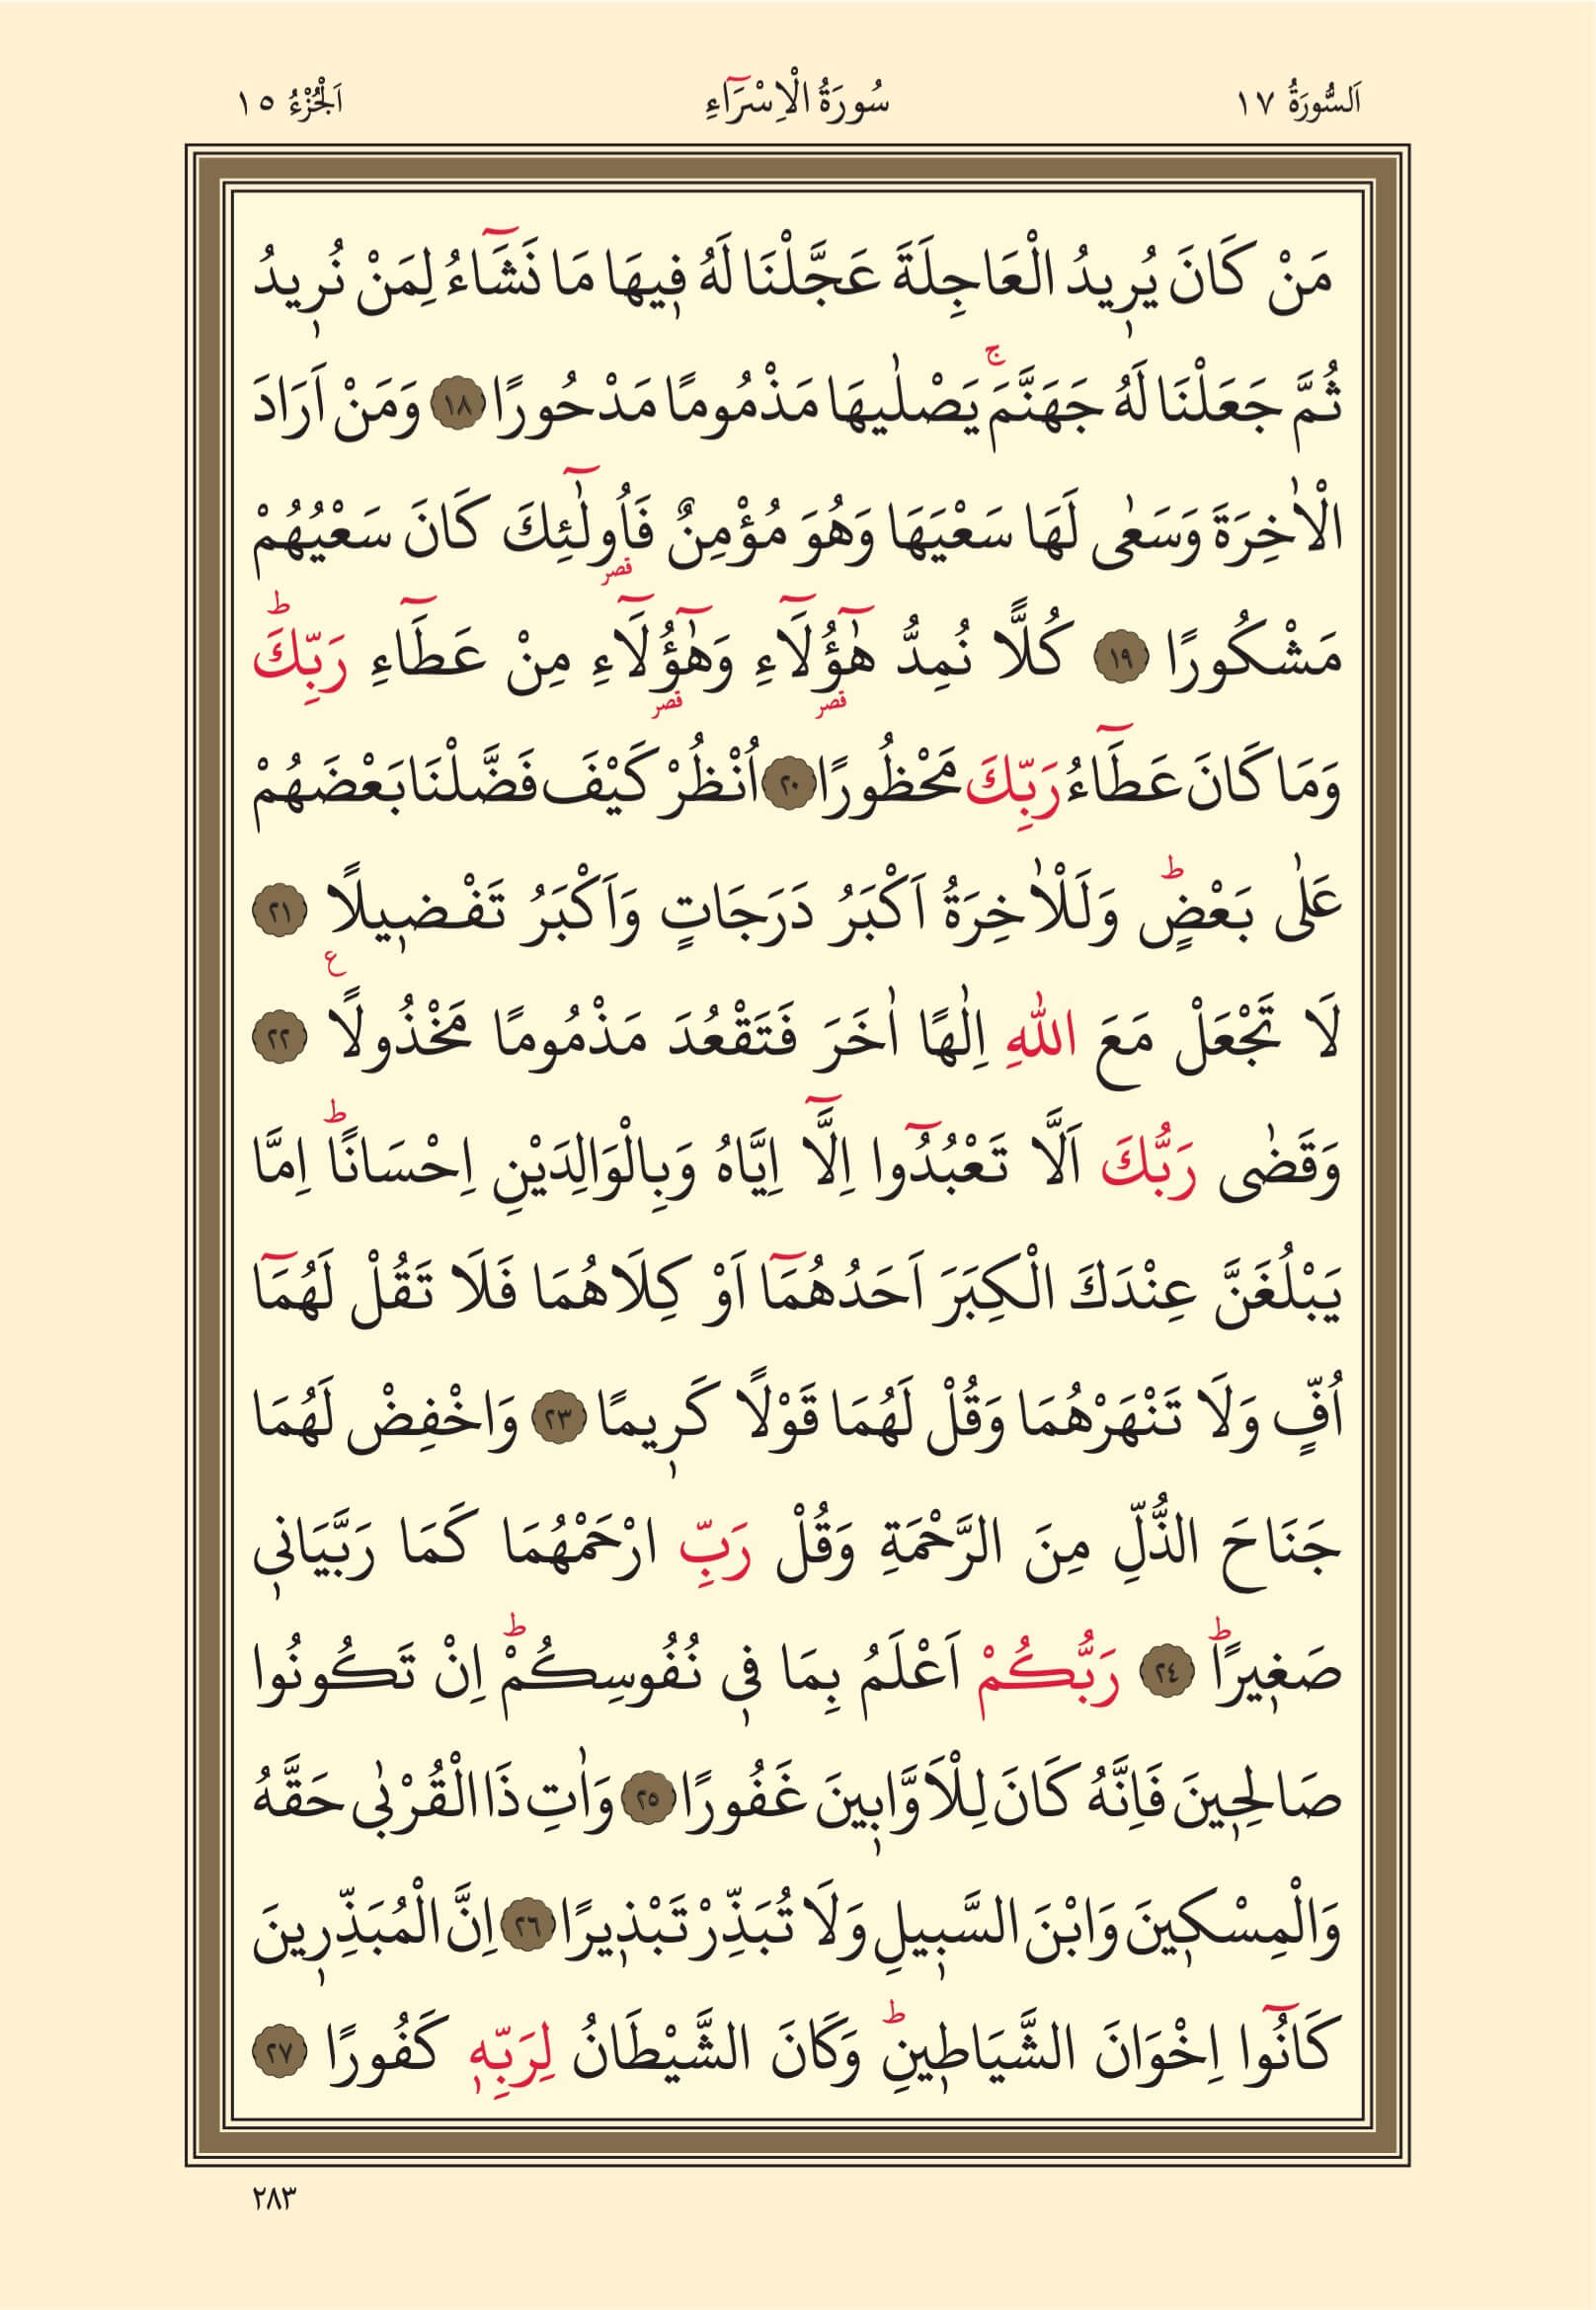 اَلسُّورَةُ ١٧ سُورَةُ الْاِسْرَٓاءِ اَلْجُزْءُ ١٥
مَنْ كَانَ يُر۪يدُ الْعَاجِلَةَ عَجَّلْنَا لَهُ ف۪يهَا مَا نَشَٓاءُ لِمَنْ نُر۪يدُ
ثُمَّ جَعَلْنَا لَهُ جَهَنَّمَۚ يَصْلٰيهَا مَذْمُومًا مَدْحُورًا ﴿١٨﴾ وَمَنْ اَرَادَ
الْاٰخِرَةَ وَسَعٰى لَهَا سَعْيَهَا وَهُوَ مُؤْمِنٌ فَاُو۬لٰٓئِكَ كَانَ سَعْيُهُمْ
قصر
مَشْكُورًا ﴿١٩﴾ كُلًّا نُمِدُّ هٰٓؤُ۬لَٓاءِ وَهٰٓؤُ۬لَٓاءِ مِنْ عَطَٓاءِ رَبِّكَۜ
قصر قصر
وَمَا كَانَ عَطَٓاءُ رَبِّكَ مَحْظُورًا ﴿٢٠﴾ اُنْظُرْ كَيْفَ فَضَّلْنَا بَعْضَهُمْ
عَلٰى بَعْضٍۜ وَلَلْاٰخِرَةُ اَكْبَرُ دَرَجَاتٍ وَاَكْبَرُ تَفْض۪يلًا ﴿٢١﴾
لَا تَجْعَلْ مَعَ اللّٰهِ اِلٰهًا اٰخَرَ فَتَقْعُدَ مَذْمُومًا مَخْذُولًا۟ ﴿٢٢﴾
وَقَضٰى رَبُّكَ اَلَّا تَعْبُدُٓوا اِلَّٓا اِيَّاهُ وَبِالْوَالِدَيْنِ اِحْسَانًاۜ اِمَّا
يَبْلُغَنَّ عِنْدَكَ الْكِبَرَ اَحَدُهُمَٓا اَوْ كِلَاهُمَا فَلَا تَقُلْ لَهُمَٓا
اُفٍّ وَلَا تَنْهَرْهُمَا وَقُلْ لَهُمَا قَوْلًا كَر۪يمًا ﴿٢٣﴾ وَاخْفِضْ لَهُمَا
جَنَاحَ الذُّلِّ مِنَ الرَّحْمَةِ وَقُلْ رَبِّ ارْحَمْهُمَا كَمَا رَبَّيَان۪ي
صَغ۪يرًاۜ ﴿٢٤﴾ رَبُّكُمْ اَعْلَمُ بِمَا ف۪ي نُفُوسِكُمْۜ اِنْ تَكُونُوا
صَالِح۪ينَ فَاِنَّهُ كَانَ لِلْاَوَّاب۪ينَ غَفُورًا ﴿٢٥﴾ وَاٰتِ ذَا الْقُرْبٰى حَقَّهُ
وَالْمِسْك۪ينَ وَابْنَ السَّب۪يلِ وَلَا تُبَذِّرْ تَبْذ۪يرًا ﴿٢٦﴾ اِنَّ الْمُبَذِّر۪ينَ
كَانُٓوا اِخْوَانَ الشَّيَاط۪ينِۜ وَكَانَ الشَّيْطَانُ لِرَبِّه۪ كَفُورًا ﴿٢٧﴾
٢٨٣